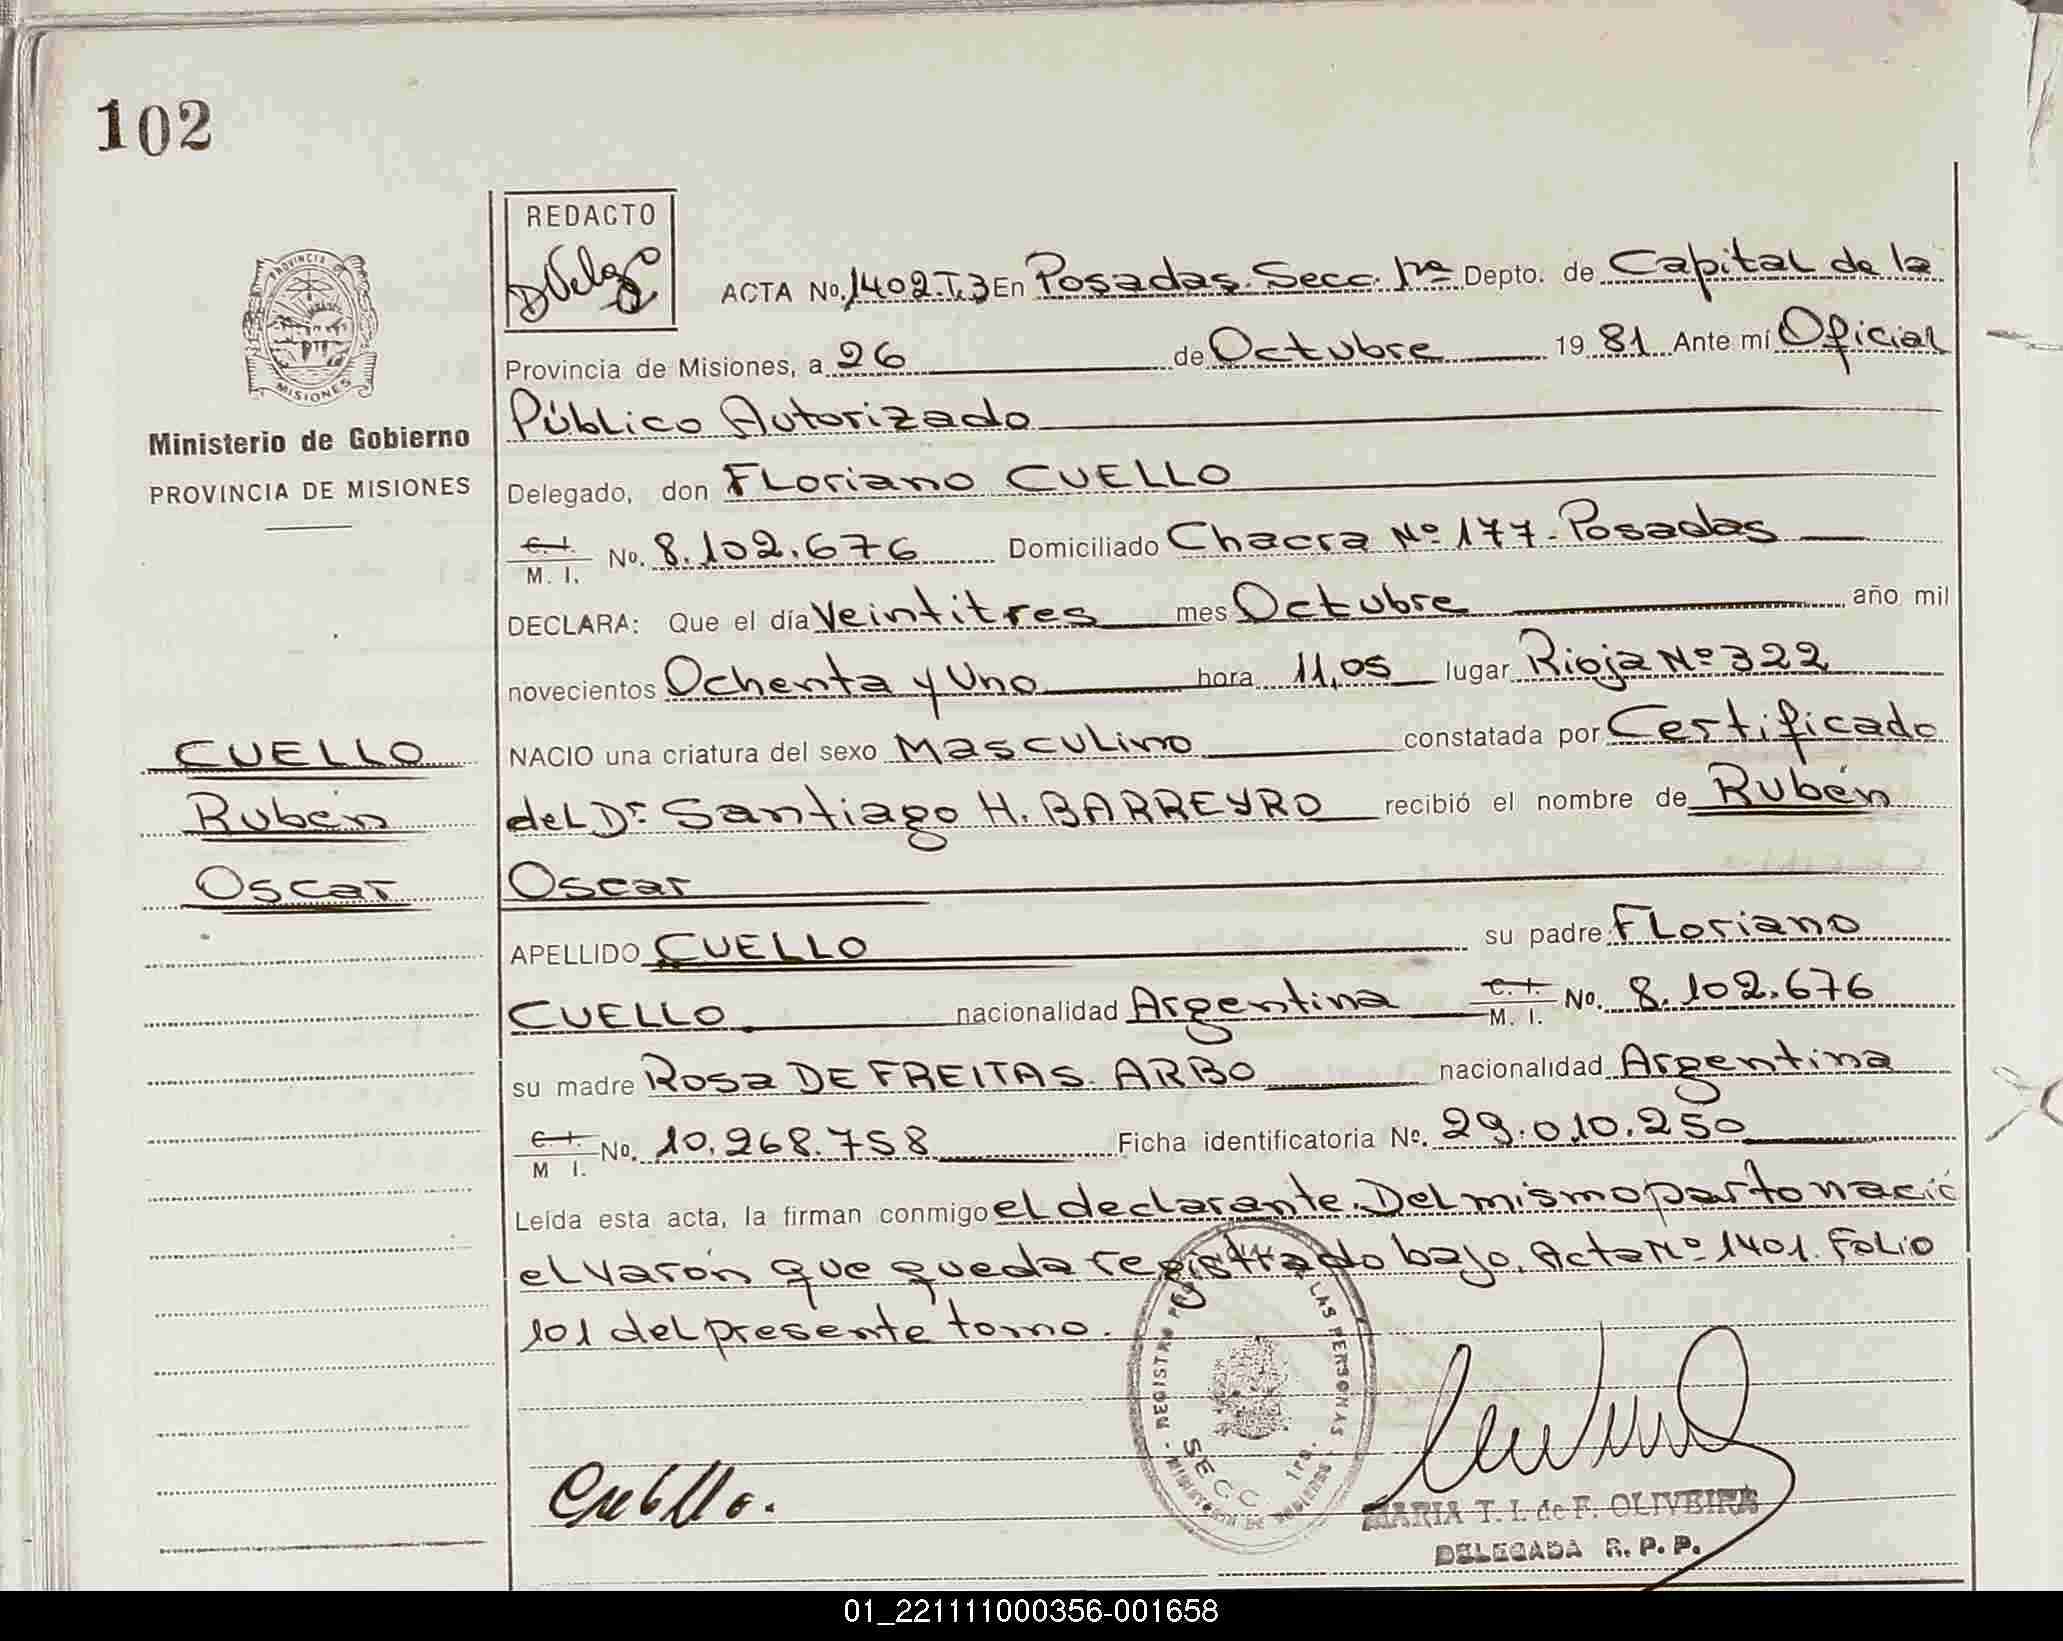 102
REDACTO
PROVINCIA DE
MISIONES
Ministerio de Gobierno
PROVINCIA DE MISIONES
ACTA No. 1402.T.3 En Posadas. Secc. 1ra Depto. de Capital de la
Provincia de Misiones, a 26 de Octubre 1981 Ante mí Oficial
Público Autorizado
Delegado, don FLoriano CUELLO
C.I. / M. I. No. 8.102.676 Domiciliado Chacra Nº 177. Posadas
DECLARA: Que el día Veintitres mes Octubre año mil
novecientos Ochenta y Uno hora 11,05 lugar Rioja Nº 322
NACIO una criatura del sexo Masculino constatada por Certificado
del Dr. Santiago H. BARREYRO recibió el nombre de Rubén
Oscar
APELLIDO CUELLO su padre FLoriano
CUELLO nacionalidad Argentina C.I. / M. I. No. 8.102.676
su madre Rosa DE FREITAS. ARBO nacionalidad Argentina
C.I. / M I. No. 10.268.758 Ficha identificatoria No. 29.010.250
Leída esta acta, la firman conmigo el declarante. Del mismo parto nació
el varón que queda registrado bajo. Acta Nº 1401. Folio
101 del presente tomo.
CUELLO
Rubén
Oscar
Cuello.
LAS PERSONAS
SECC. 1ra.
MARIA T. I. de F. OLIVEIRA
DELEGADA R. P. P.
01_221111000356-001658